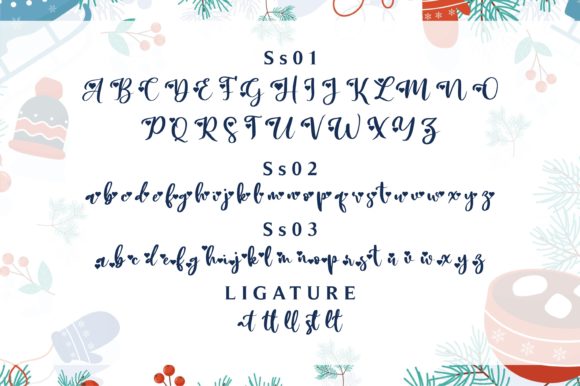 Ss01
A B C D E F G H I J K L M N O
P Q R S T U V W X Y Z
Ss02
a b c d e f g h i j k l m n o p q r s t u v w x y z
Ss03
a b c d e f g h i j k l m n o p q r s t u v w x y z
LIGATURE
at tt ll st lt